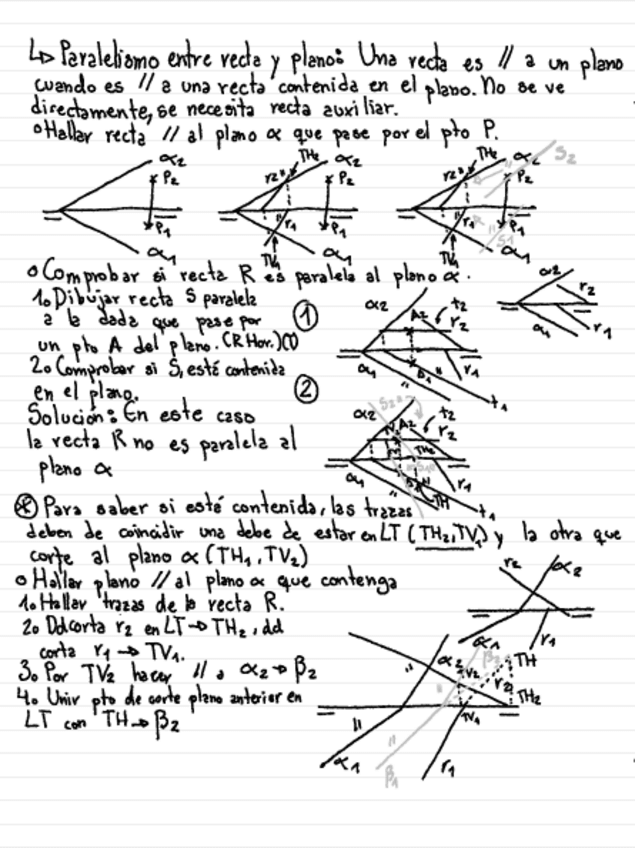 ↳ Paralelismo entre recta y plano: Una recta es // a un plano
cuando es // a una recta contenida en el plano. No se ve
directamente, se necesita recta auxiliar.
o Hallar recta // al plano α que pase por el pto P.
α2 P2 P1 α1
TH2 r2 α2 P2 r1 P1 TV1 α1
TH2 α2 S2 r2 P2 r1 P1 S1 TV1 α1
o Comprobar si recta R es paralela al plano α.
1o Dibujar recta S paralela
a la dada que pase por
un pto A del plano. (R Hor.)(1)
2o Comprobar si S, esté contenida
en el plano.
Solución: En este caso
la recta R no es paralela al
plano α
α2 r2 α1 r1
① α2 A2 t2 r2 α1 A1 " " r1 t1
② α2 S2 A2 t2 r2 TH2 α1 " " TH r1 t1
⊛ Para saber si esté contenida, las trazas
deben de coincidir una debe de estar en LT (TH2, TV1) y la otra que
corte al plano α (TH1, TV2)
o Hallar plano // al plano α que contenga
1o Hallar trazas de la recta R.
2o Dd corta r2 en LT → TH2, dd
corta r1 → TV1.
3o Por TV2 hacer // a α2 → β2
4o Unir pto de corte plano anterior en
LT con TH → β2
r2 α2 α1 r1
α2 β2 V2 TH r2 TH2 TV1 " " " " α1 β1 r1